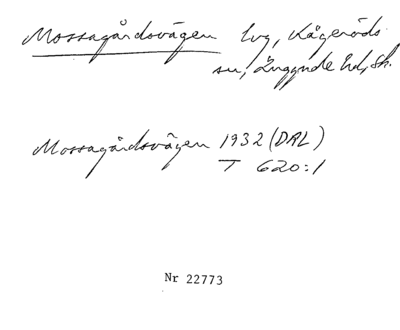 Mossagårdsvägen lvg, Kågeröds
sn, Luggude hd, Sk.
Mossagårdsvägen 1932 (DAL)
T 620:1
Nr 22773